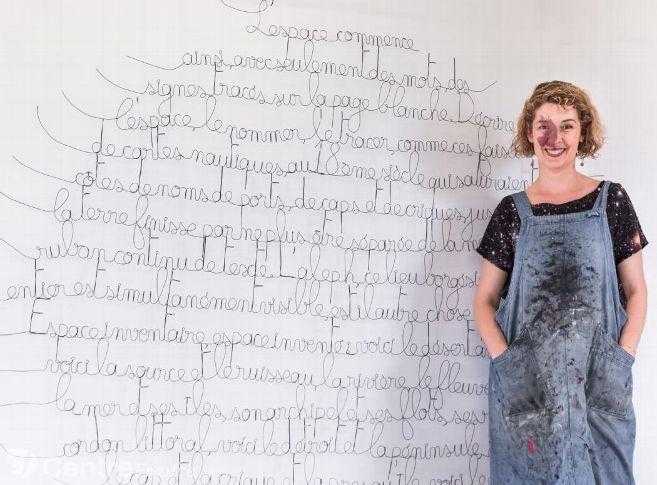 L'espace commence
ainsi, avec seulement des mots, des
signes tracés sur la page blanche. Décrire
l'espace, le nommer, le tracer, comme ces fais
de cartes nautiques au 18ème siècle qui saturaien
côtes de noms de ports, de caps et de criques, jus
la terre finisse par ne plus être séparée de la m
ruban continu de texte. L'aleph, ce lieu borgés
entier est simultanément visible, est-il autre chose
Espace inventaire, espace inventé, voici le désert
voici la source et le ruisseau, la rivière, le fleuve
la mer et ses îles, son archipel et ses flots, ses
cordon littoral, voici le détroit et la péninsule